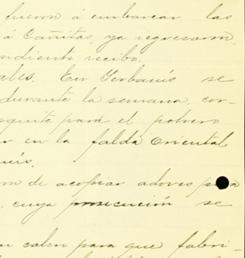 fueron á embarcar las
á Cañitas, ya regresaron
ndiente recibo.
ales. En Gerbanis se
durante la semana, cor-
squete para el potrero
r en la falda Oriental
uis.
on de acopiar adoves para
, cuya prosecución se
n calen para que fabri-